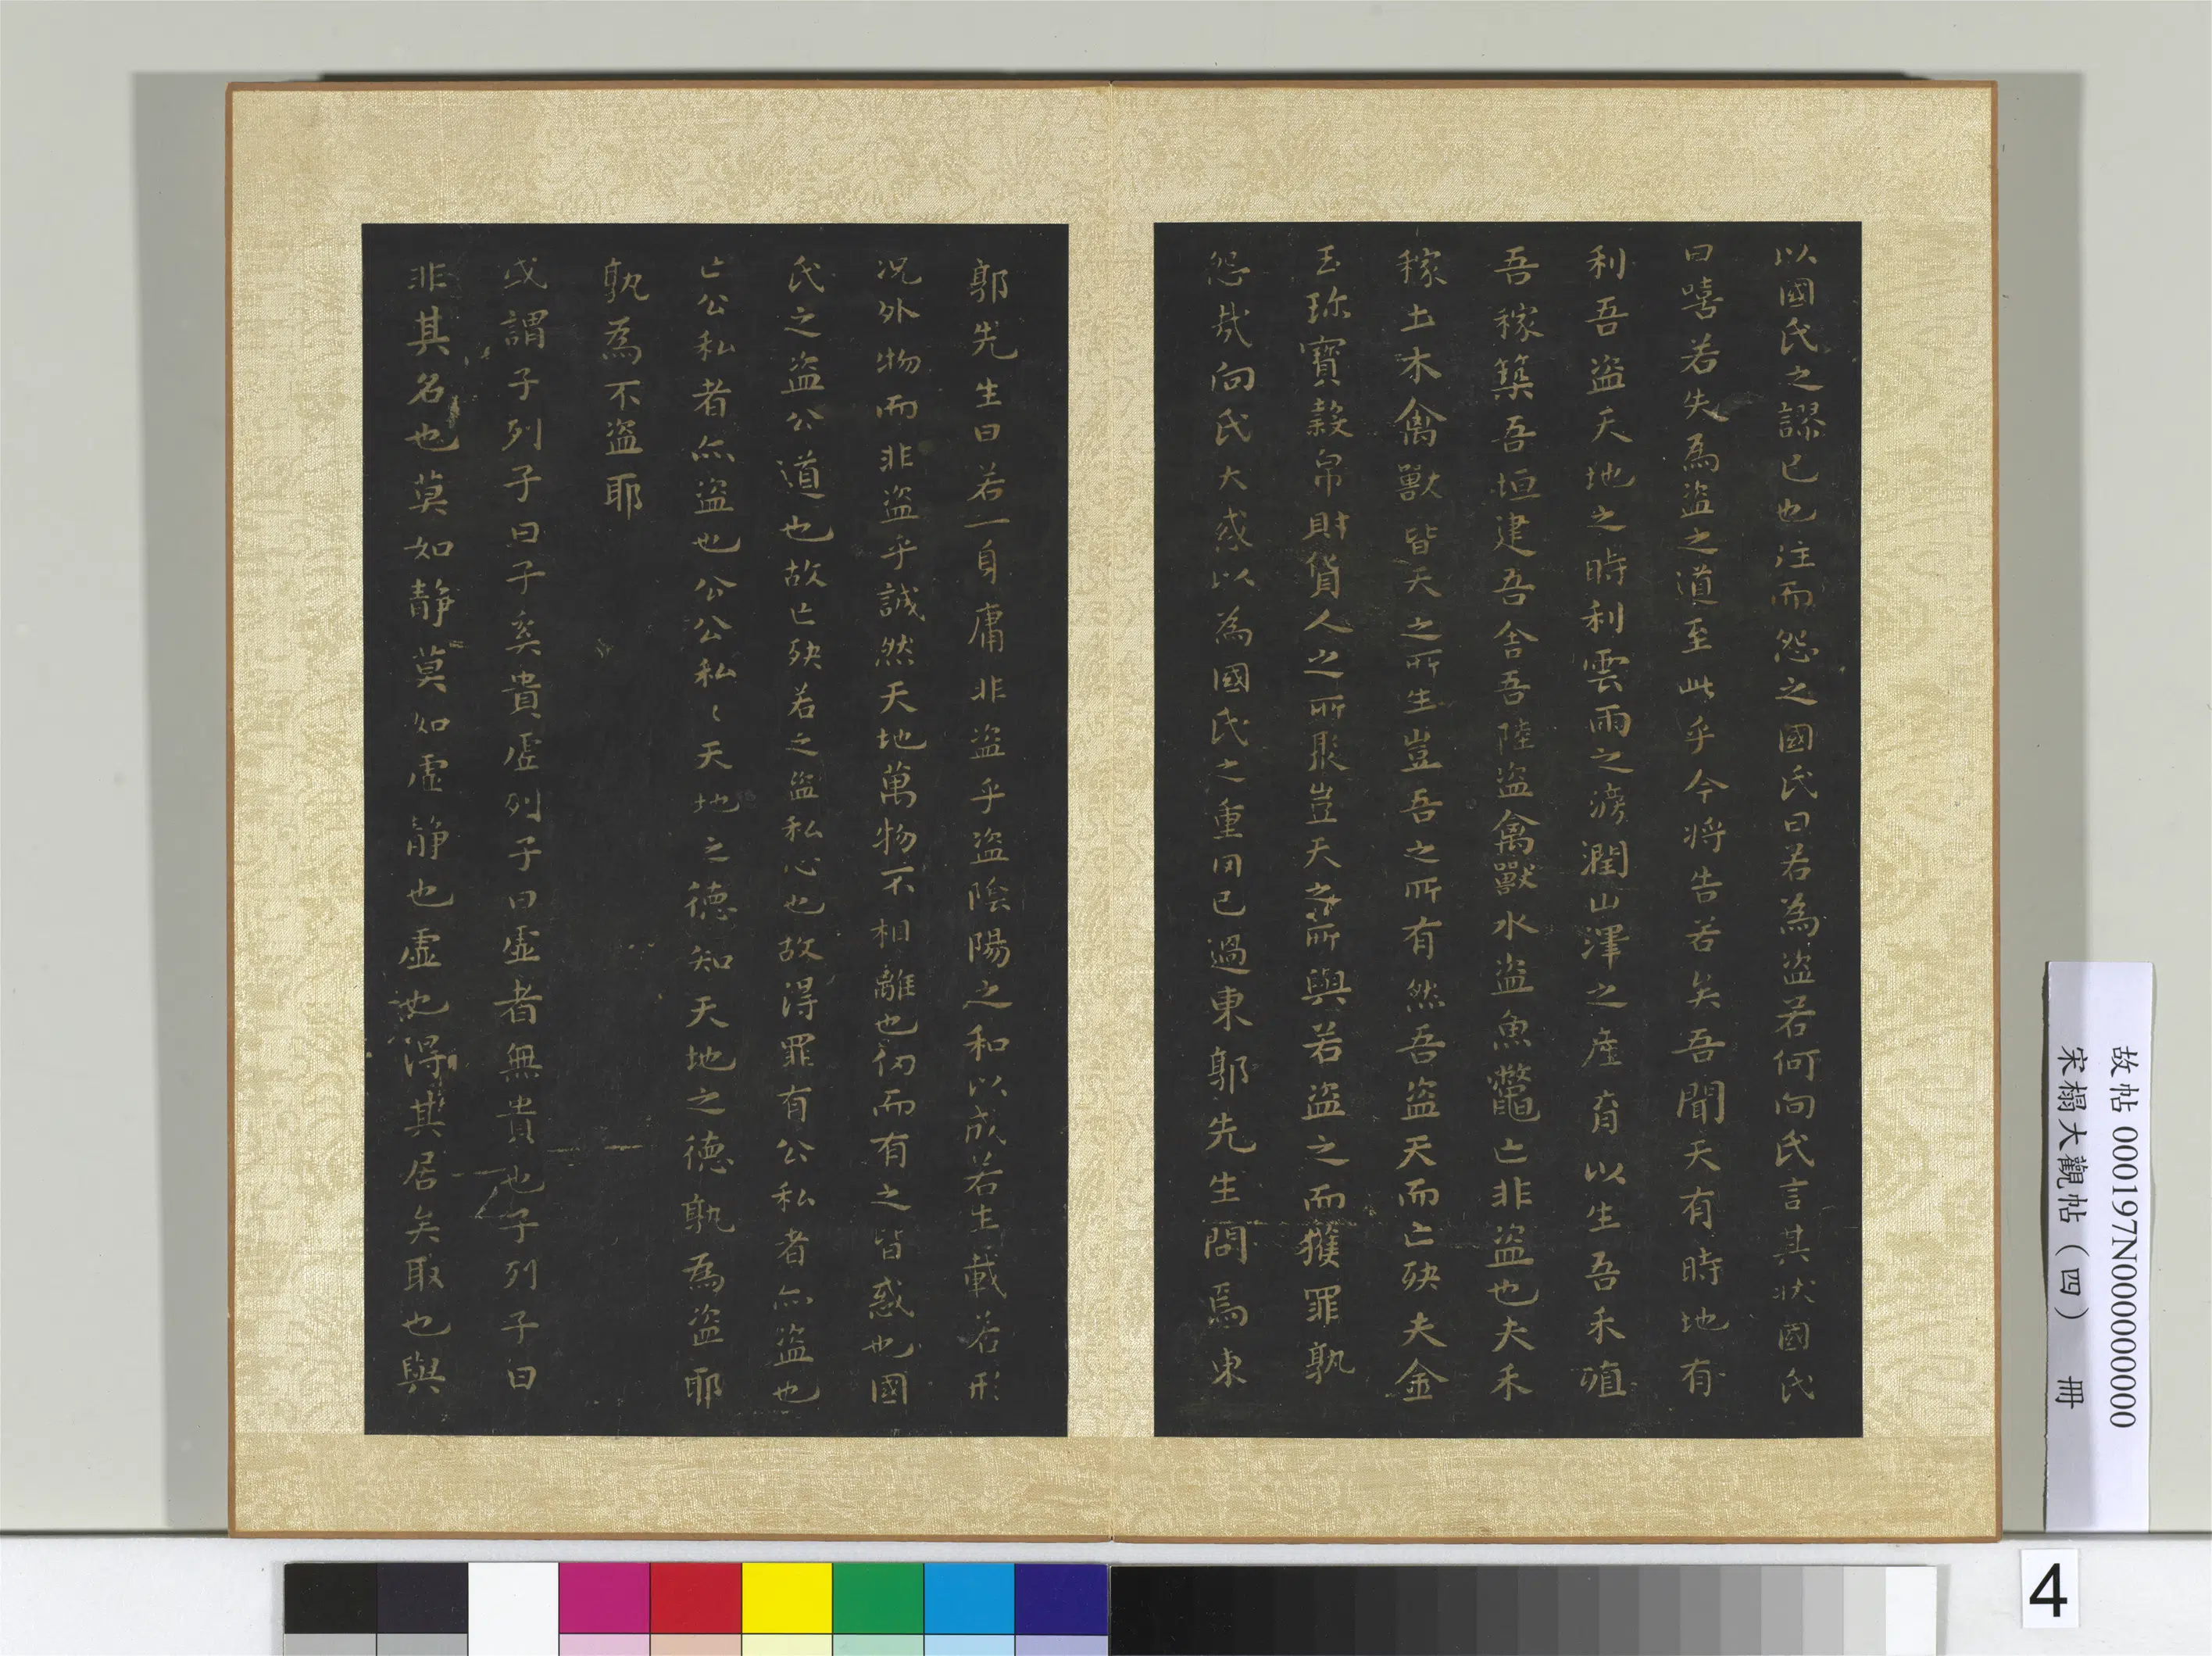 以國氏之謬己也往而怨之國氏曰若為盜若何向氏言其狀國氏
曰嘻若失為盜之道至此乎今將告若矣吾聞天有時地有
利吾盜天地之時利雲雨之滂潤山澤之產育以生吾禾殖
吾稼築吾垣建吾舍吾陸盜禽獸水盜魚鼈亡非盜也夫禾
稼土木禽獸皆天之所生豈吾之所有然吾盜天而亡殃夫金
玉珎寶穀帛財貨人之所聚豈天之所與若盜之而獲罪孰
怨哉向氏大惑以為國氏之重罔己過東郭先生問焉東
郭先生曰若一身庸非盜乎盜陰陽之和以成若生載若形
況外物而非盜乎誠然天地萬物不相離也仞而有之皆惑也國
氏之盜公道也故亡殃若之盜私心也故得罪有公私者亦盜也
亡公私者亦盜也公公私〻天地之德知天地之德孰為盜耶
孰為不盜耶
或謂子列子曰子奚貴虛列子曰虛者無貴也子列子曰
非其名也莫如靜莫如虛靜也虛也得其居矣取也與
故帖 000197N000000000
宋榻大觀帖（四） 冊
4